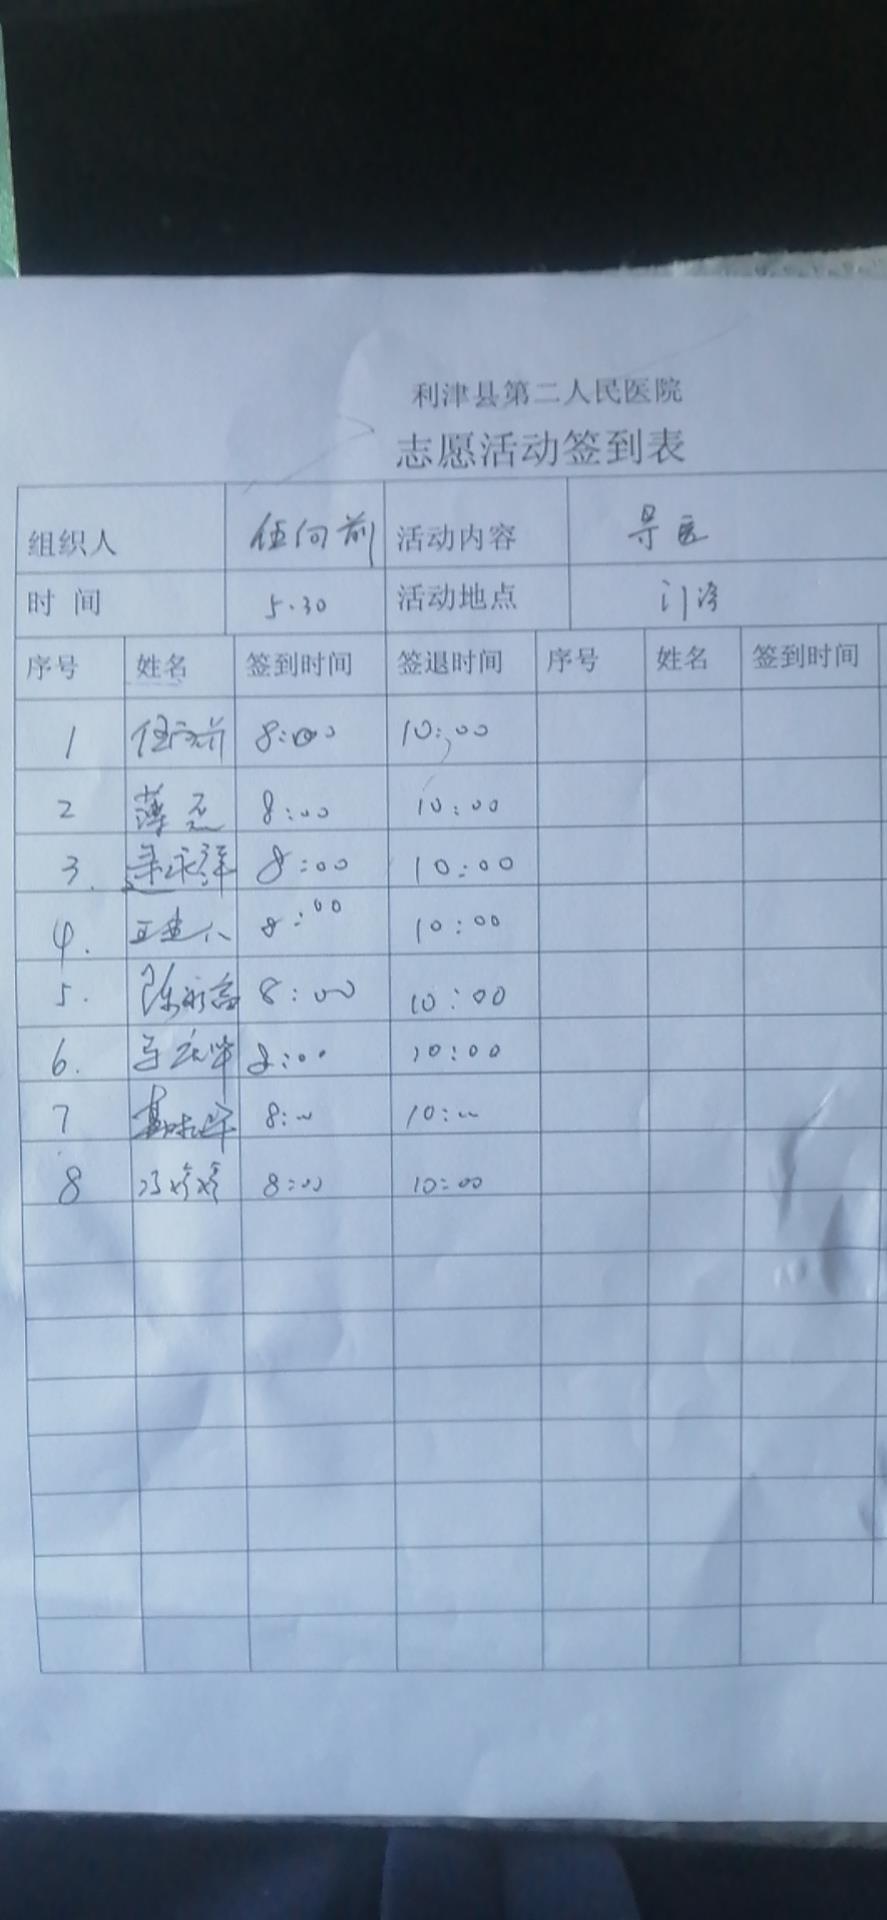 利津县第二人民医院
志愿活动签到表
组织人 任向前 活动内容 导医
时 间 5.30 活动地点 门诊
序号 姓名 签到时间 签退时间 序号 姓名 签到时间
1 任向前 8:00 10:00
2 薄 8:00 10:00
3. 8:00 10:00
4. 8:00 10:00
5. 陈 8:00 10:00
6. 8:00 10:00
7 8:00 10:00
8 冯婷婷 8:00 10:00